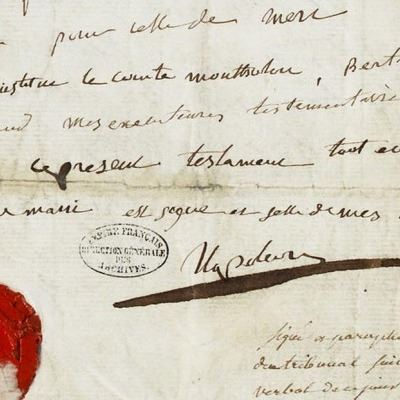 pour celle de mert
institue le comte montholon, Bert
mes executeures testementaire
ce present testament tout ec
main est signe et selle de mes
EMPIRE FRANÇAIS
DIRECTION GÉNÉRALE
DES
ARCHIVES.
Napoleon
signé et paraphé
du tribunal
verbal de ce jour